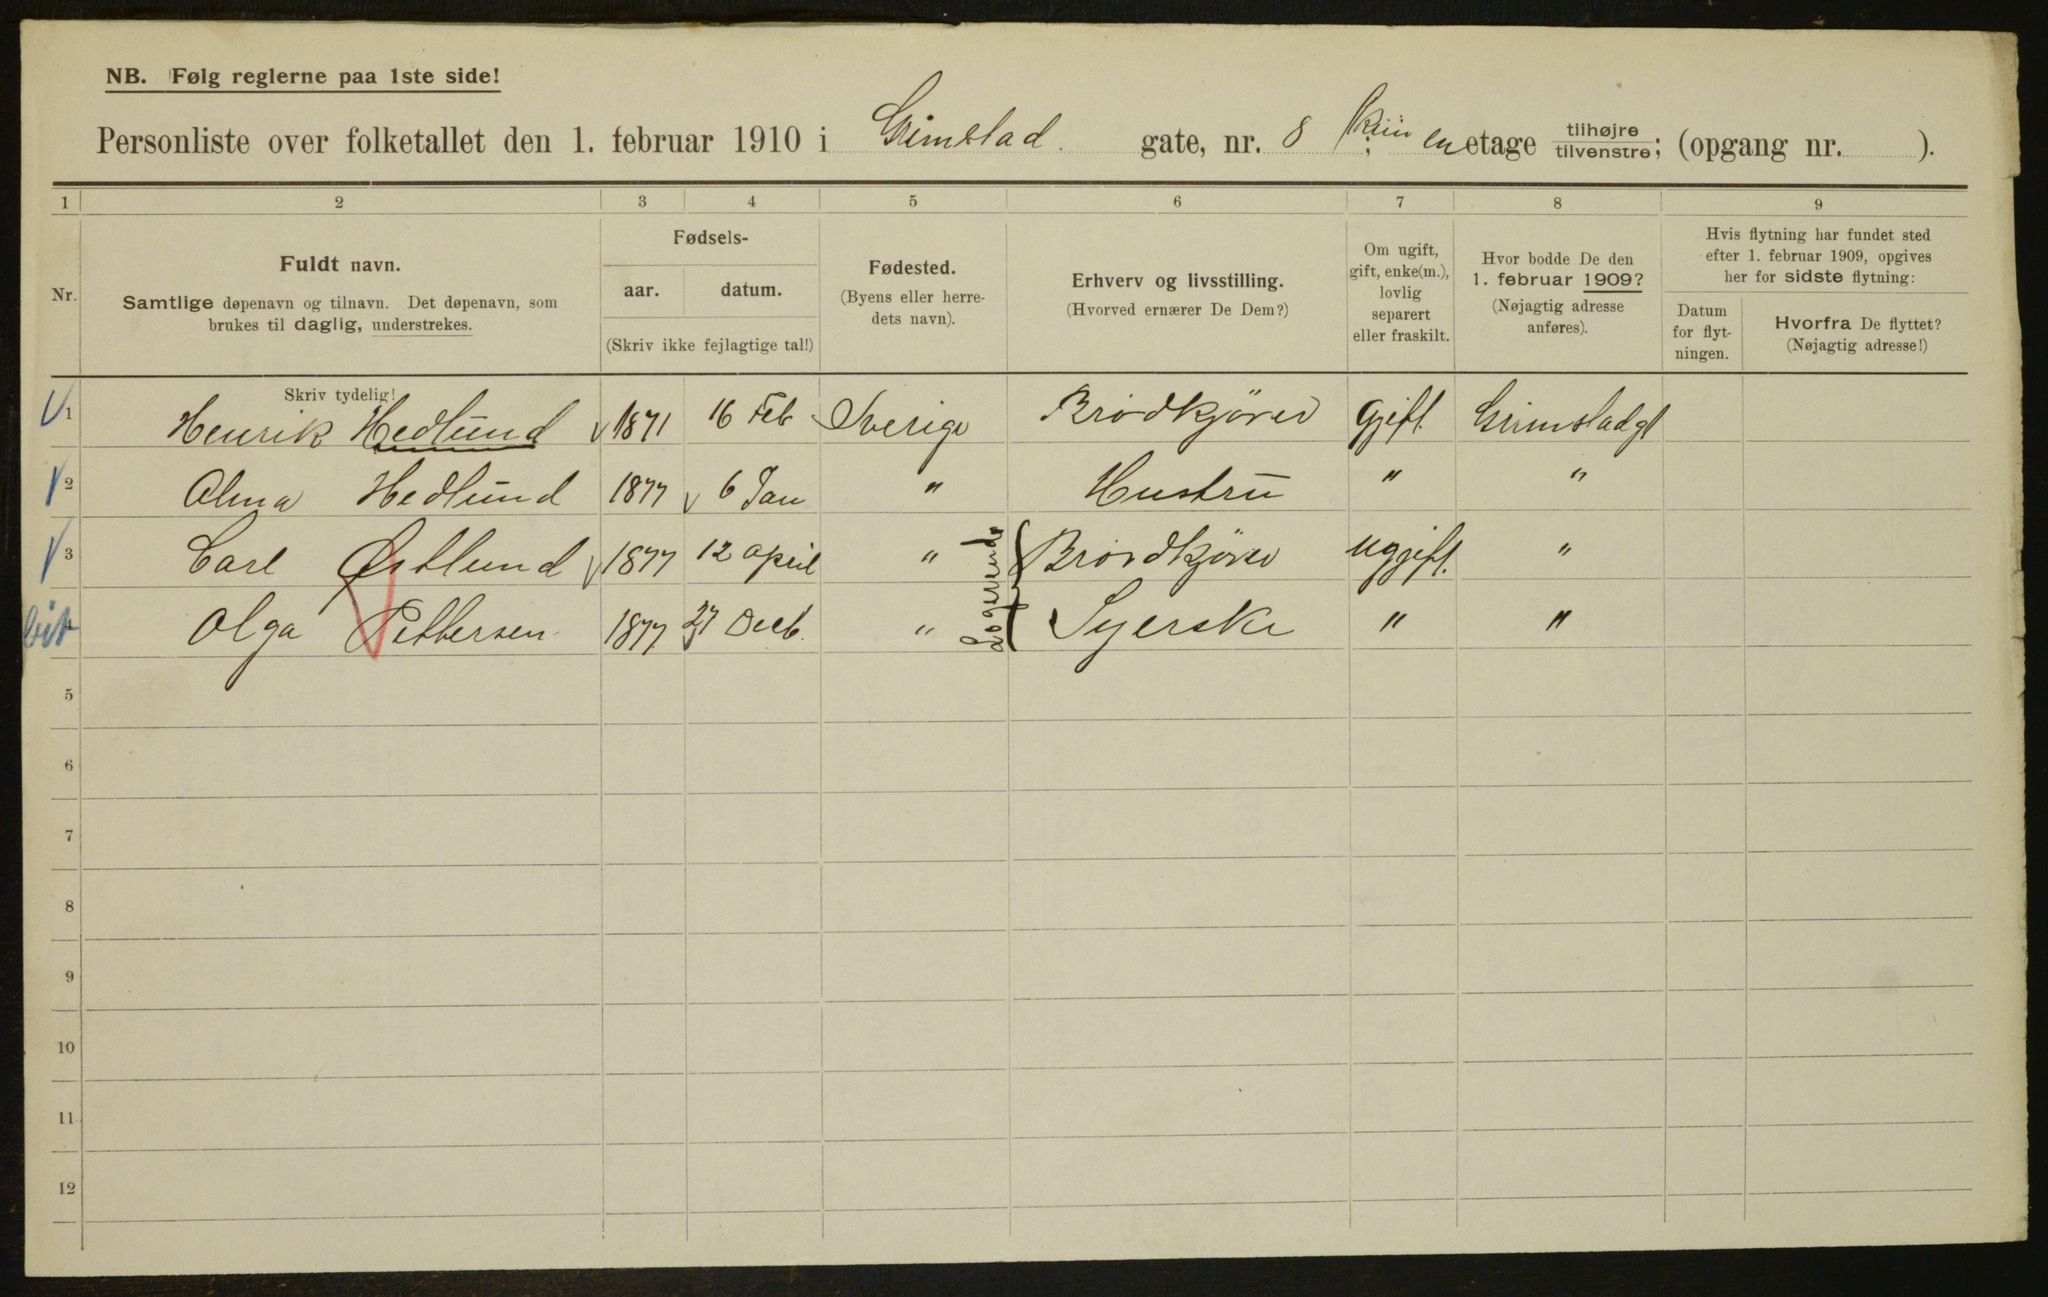 NB. Følg reglerne paa 1ste side!
Personliste over folketallet den 1. februar 1910 i Grimstad. gate, nr. 8 ; en etage tilhøjre/tilvenstre; (opgang nr. ).
1 2 3 4 5 6 7 8 9
Nr.
Fuldt navn.
Samtlige døpenavn og tilnavn. Det døpenavn, som
brukes til daglig, understrekes.
Skriv tydelig!
Fødsels-
aar. datum.
(Skriv ikke fejlagtige tal!)
Fødested.
(Byens eller herre-
dets navn).
Erhverv og livsstilling.
(Hvorved ernærer De Dem?)
Om ugift,
gift, enke(m.),
lovlig
separert
eller fraskilt.
Hvor bodde De den
1. februar 1909?
(Nøjagtig adresse
anføres).
Hvis flytning har fundet sted
efter 1. februar 1909, opgives
her for sidste flytning:
Datum
for flyt-
ningen.
Hvorfra De flyttet?
(Nøjagtig adresse!)
1 Henrik Hedlund 1871 16 Feb Sverige Brödkjörer gjift. Grimstadgt
2 Alma Hedlund 1877 6 Jan " Hustru " "
3 Carl Østlund 1877 12 april " Brödkjörer ugjift. "
4 Olga Pettersen 1877 27 Decb. " Syerske " "
Logerende
5
6
7
8
9
10
11
12